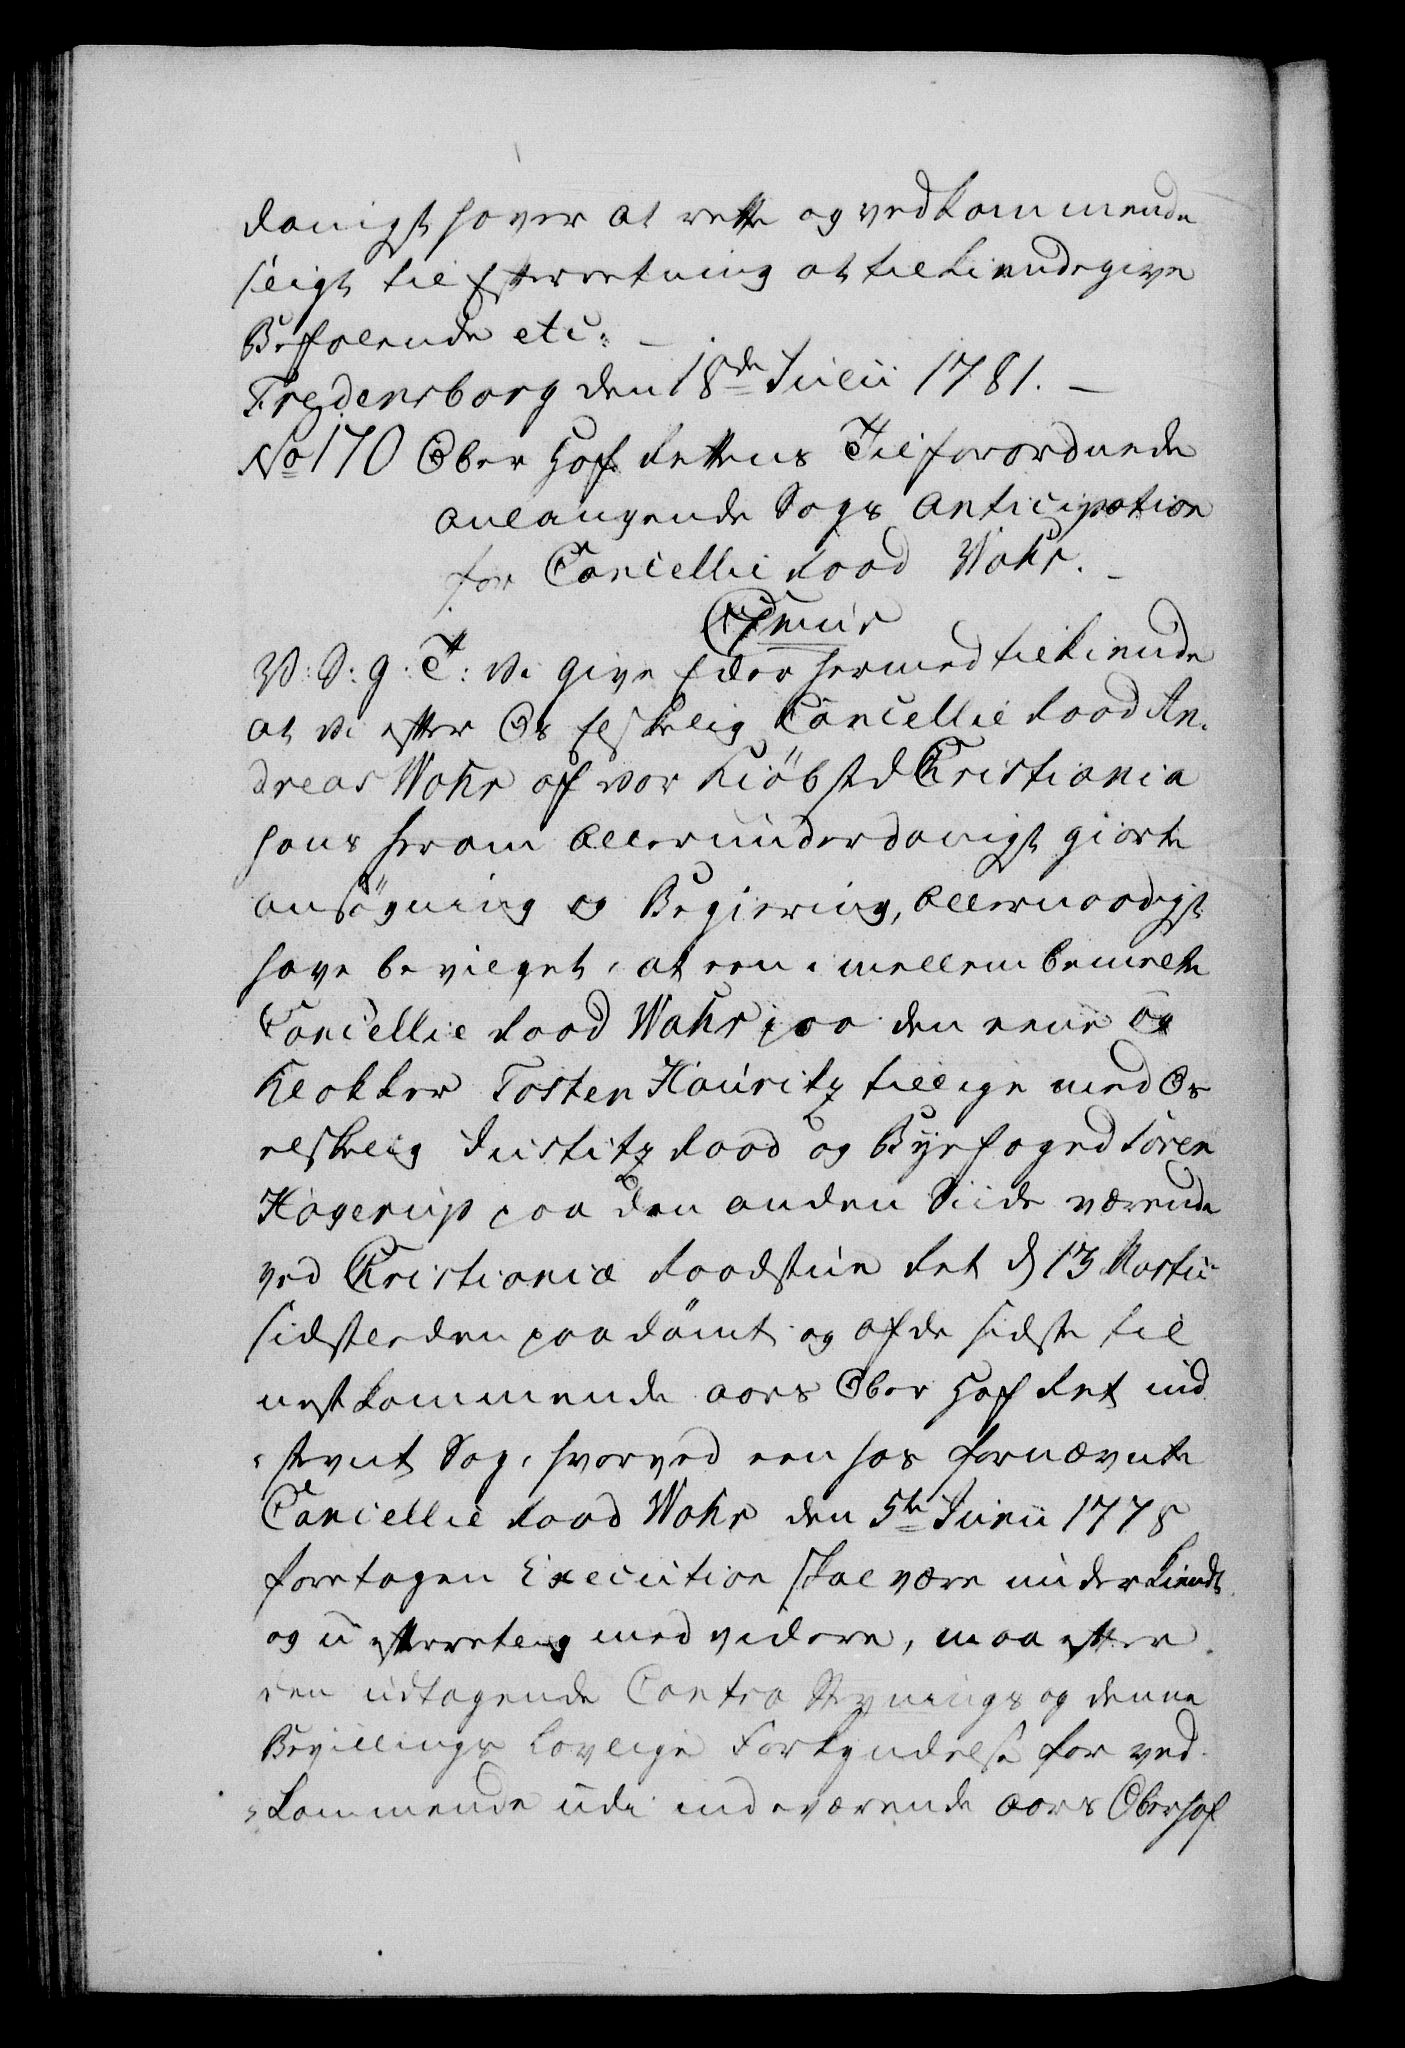 danigst haver at rette og vedkommende
sligt til Efterretning at tilkiendegive
Befalende etc: —
Fredensborg den 18de Julii 1781. —
No 170 Ober Hof Rettens Tilforordnede
anlangende Sags Anticipation
for Cancellie Raad Wohr. —
C7mus
V: S: G: T: Vi give Eder hermed tilkiende
at Vi efter Os Elskelig Cancellie Raad An-
dreas Wohr af vor Kiöbstd Christiania
hans herom allerunderdanigst giorte
ansögning og Begiering, allernaadigst
have bevilget, at een imellem bemelte
Cancellie Raad Wohr paa den eene og
Klokker Tosten Hauritz tillige med Os
elskelig Justitz Raad og Byefoged Sören
Hagerup paa den anden Siide værende
ved Christiania Raadstue Ret d 13 Martii
sidstleden paadömt og af de sidste til
nestkommende aars Ober Hof Ret ind
stevnt Sag, hvorved een hos fornævnte
Cancellie Raad Wohr den 5te Junii 1778
foretagen Execution skal være underkiendt
og u efterrettelig med videre, maa efter
den udtagende Contra Stevnings og denne
Bevillings lovlige Forkyndelse for ved-
kommende udi indeværende aars Oberhof